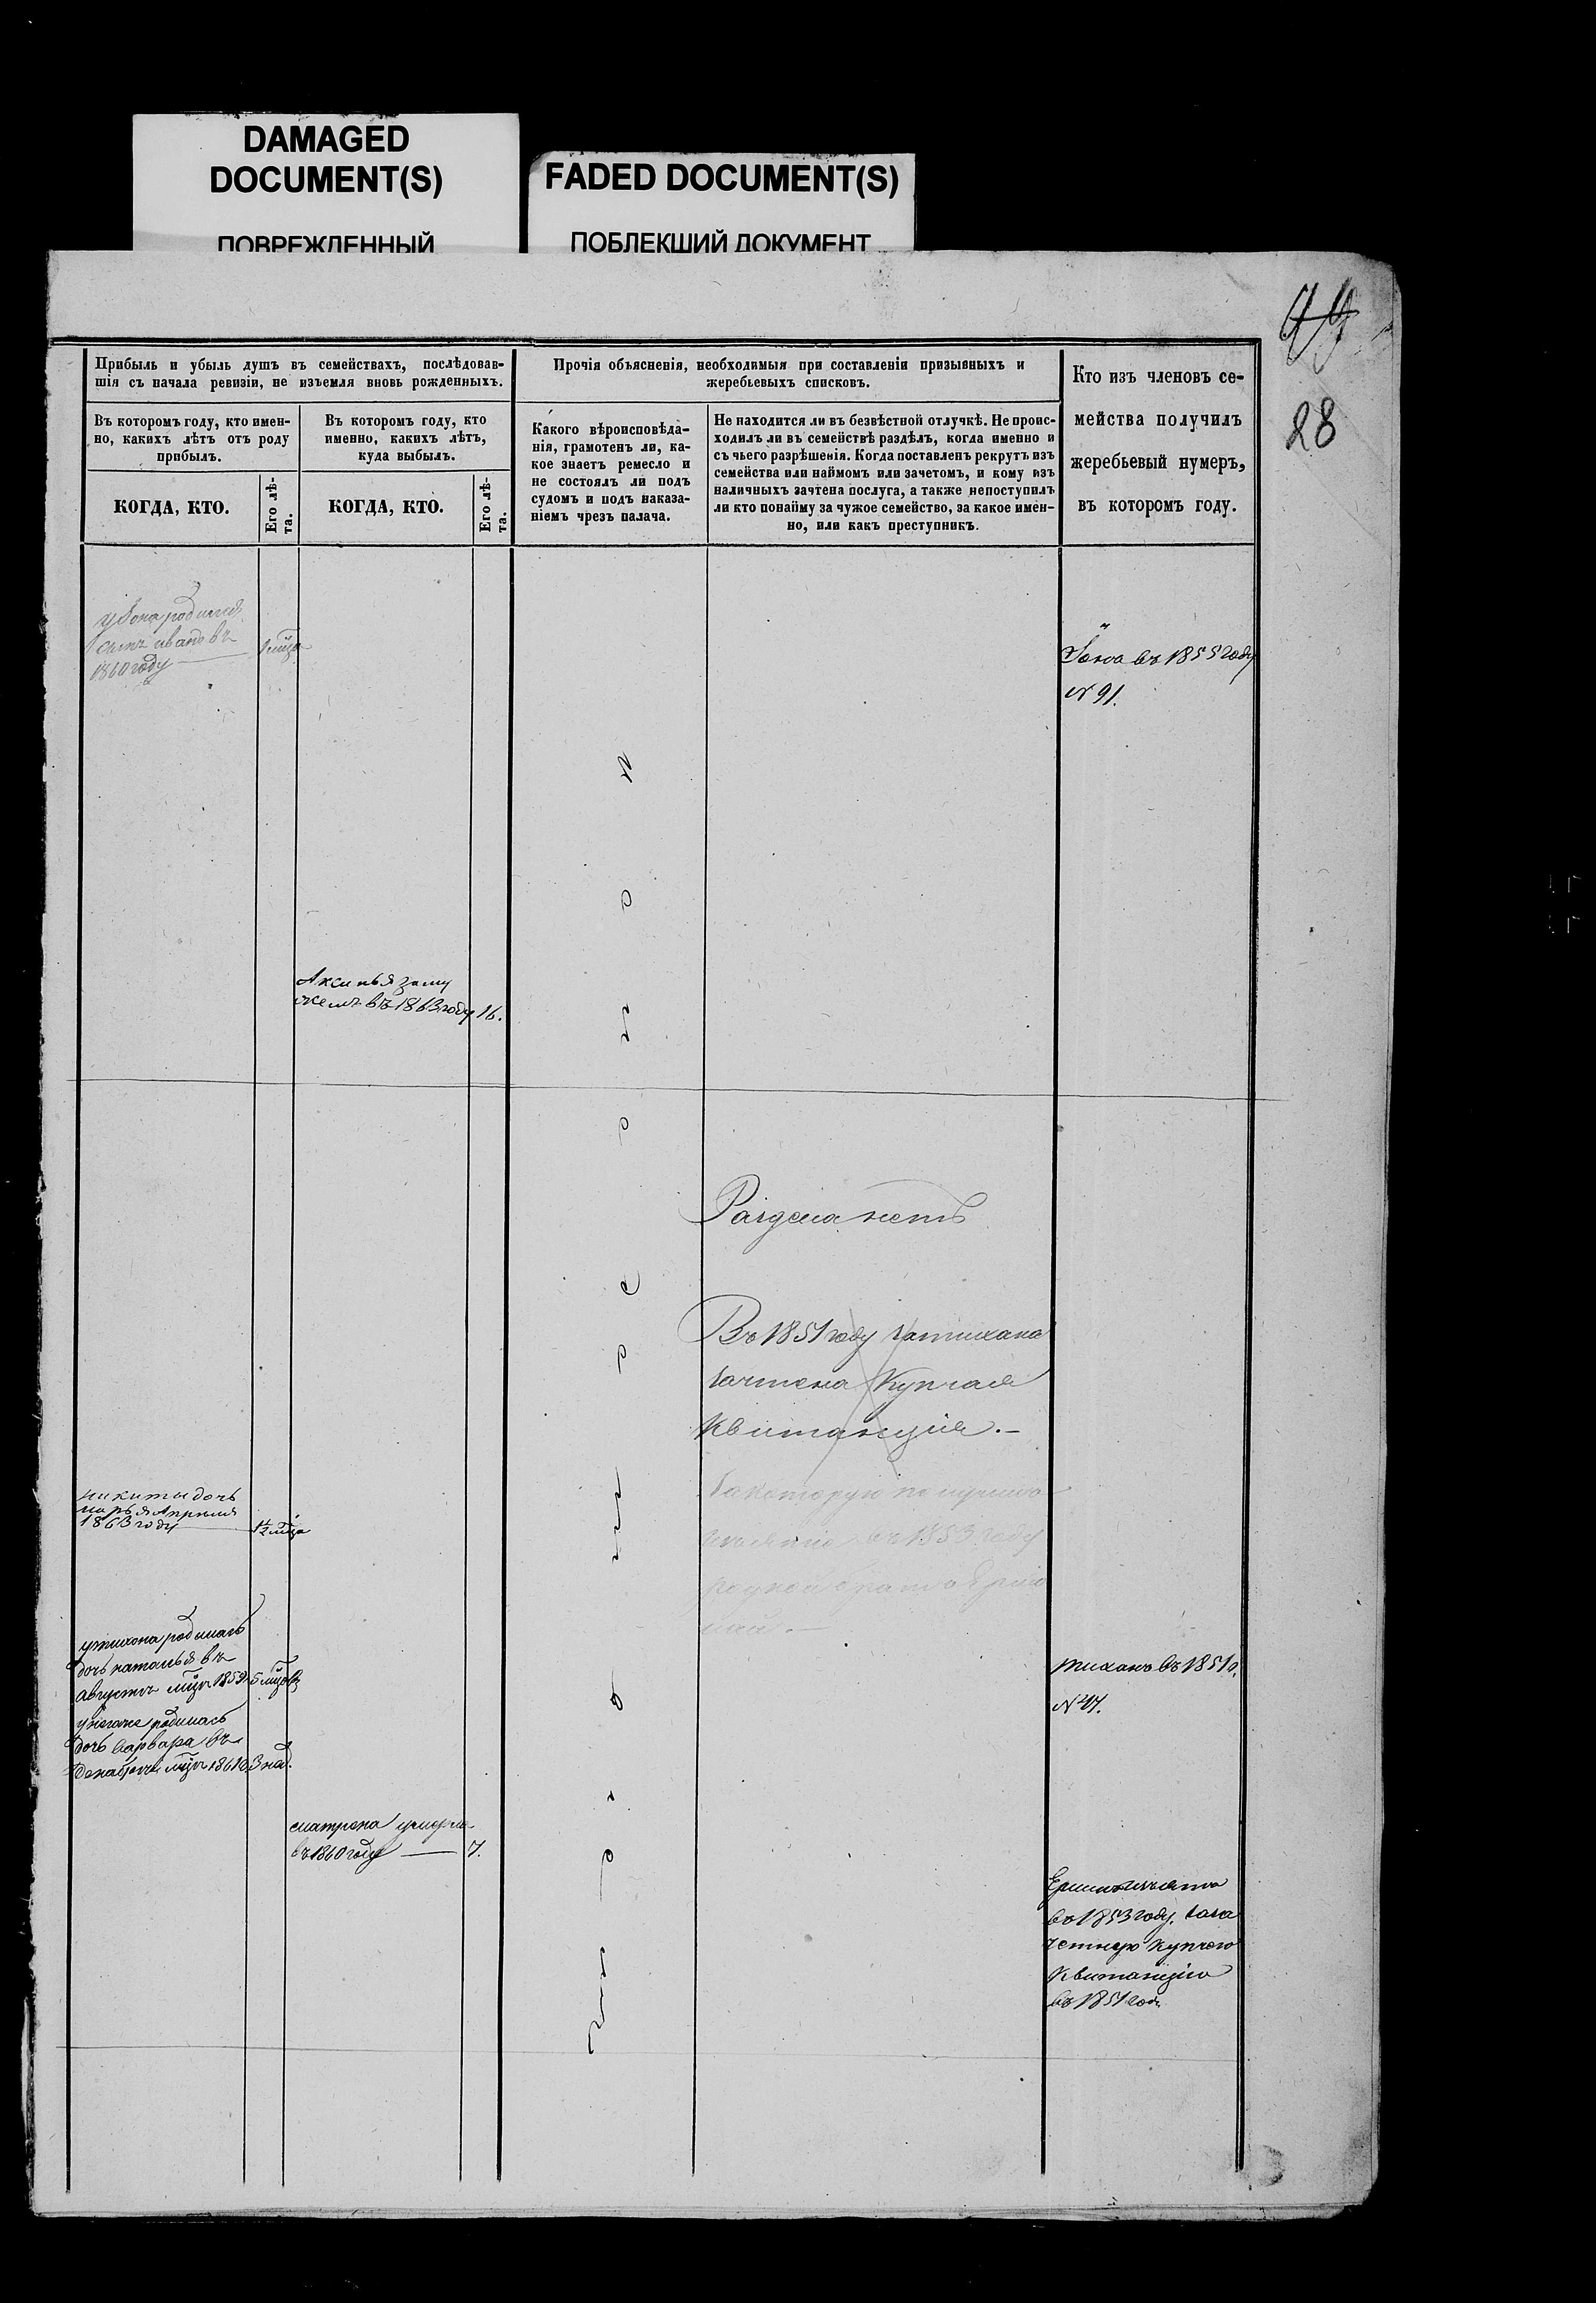 DAMAGED
DOCUMENT(S)
ПОВРЕЖДЕННЫЙ
FADED DOCUMENT(S)
ПОБЛЕКШИЙ ДОКУМЕНТ
28
Прибыль и убыль душъ въ семействахъ, послѣдовав-
шія съ начала ревизіи, не изъемля вновь рожденныхъ.
Въ которомъ году, кто имен-
но, какихъ лѣтъ отъ роду
прибылъ.
Въ которомъ году, кто
именно, какихъ лѣтъ,
куда выбылъ.
КОГДА, КТО.
Его лѣ-
та.
КОГДА, КТО.
Его лѣ-
та.
Прочія объясненія, необходимыя при составленіи призывныхъ и
жеребьевыхъ списковъ.
Какого вѣроисповѣда-
нія, грамотенъ ли, ка-
кое знаетъ ремесло и
не состоялъ ли подъ
судомъ и подъ наказа-
ніемъ чрезъ палача.
Не находится ли въ безвѣстной отлучкѣ. Не проис-
ходилъ ли въ семействѣ раздѣлъ, когда именно и
съ чьего разрѣшенія. Когда поставленъ рекрутъ изъ
семейства или наймомъ или зачетомъ, и кому изъ
наличныхъ зачтена послуга, а также непоступилъ
ли кто понайму за чужое семейство, за какое имен-
но, или какъ преступникъ.
Кто изъ членовъ се-
мейства получилъ
жеребьевый нумеръ,
въ которомъ году.
родился
сынъ иванъ въ
1860 году
Іона въ 1855 году
№ 91.
Аксинья заму
жемъ въ 1863 году 16.
Раздела нетъ
Во 1851 году за тихана
зачтена Купчая
Квитанция.—
за которую
въ 1853 году
никиты дочь
марья Апреля
1863 году
у тихона родилась
дочь наталья въ
августе мцъ 1859 5 мцовъ
родилась
дочь варвара въ
декабре мцъ 1861 3 нед.
тиханъ въ 1851 г.
матрена умерла
въ 1860 году — 7.
во 1853 году. зача
четную купчею
Квитанцию
въ 1851 году